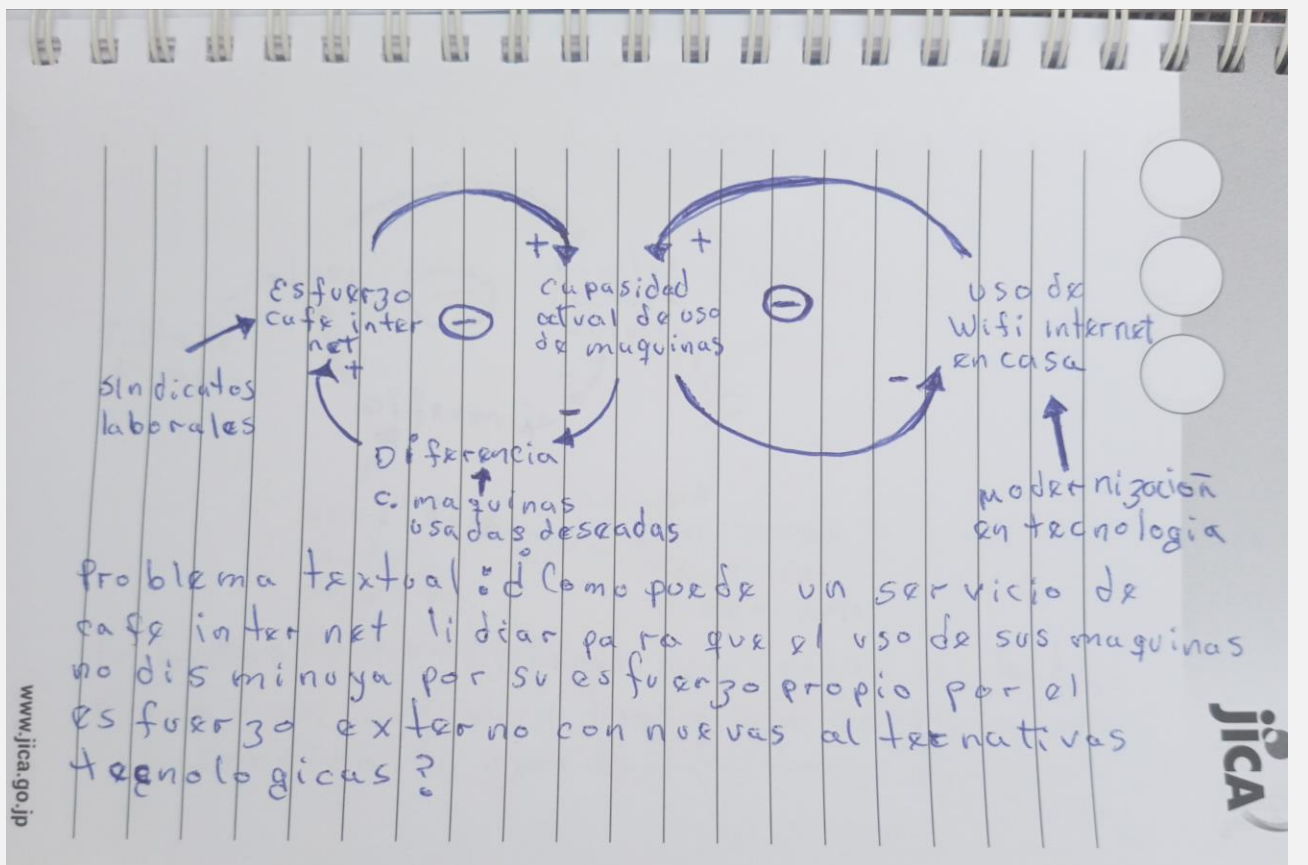 +
+
Esfuerzo
cafe inter
net
-
capasidad
actual de uso
de maquinas
-
uso de
Wifi internet
en casa
+
-
-
sindicatos
laborales
Diferencia
c. maquinas
usadas deseadas
modernización
en tecnologia
Problema textual: ¿Como puede un servicio de
cafe internet lidiar para que el uso de sus maquinas
no disminuya por su esfuerzo propio por el
esfuerzo externo con nuevas alternativas
tecnologicas?
www.jica.go.jp
jICA